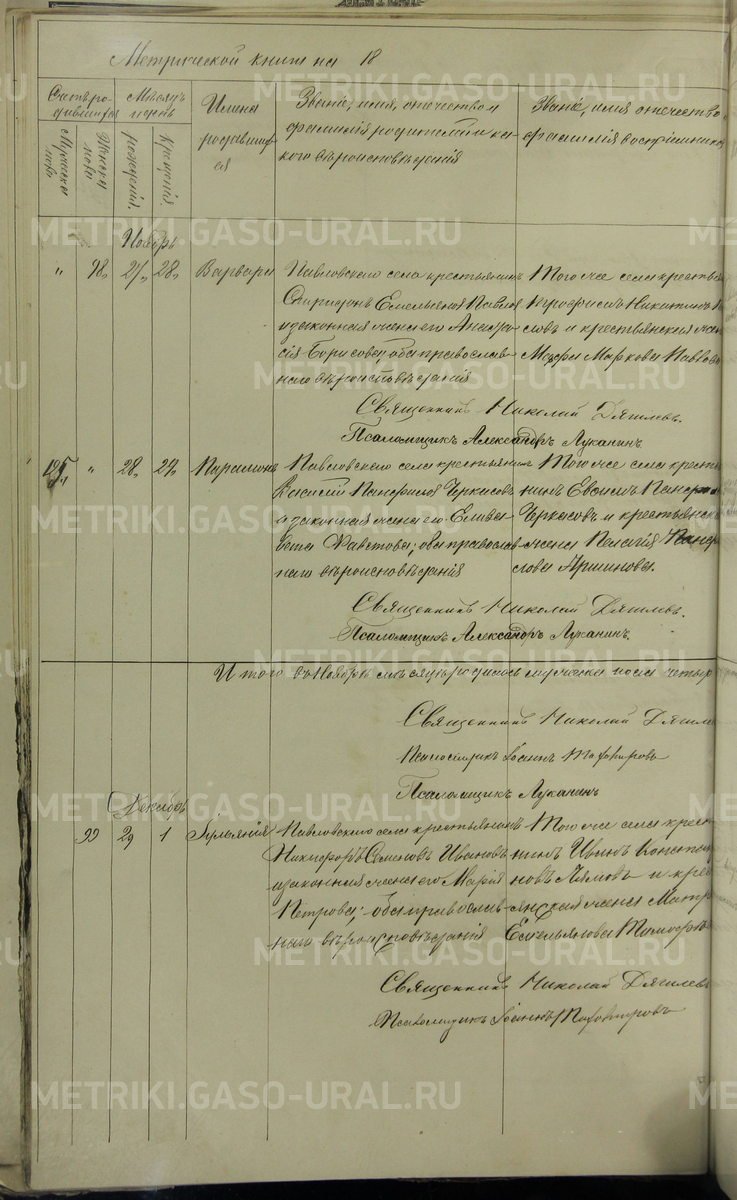 Метрической книги на 18
Счетъ ро-
дившихся
Мѣсяцъ
Имена
родивших
ся
Званіе, имя, отчество и
фамилія родителей и ка-
кого вѣроисповѣданія
Званіе, имя отчество
фамилія воспріемнико
рожденія.
крещенія.
Ноябрь
" 98. 27. 28. Варвара
Павловскаго села крестьянинъ
Спиридонъ Емельяновъ Павло
и законная жена его Анаста
сія Борисова; оба православ-
наго вѣроисповѣданія
Того же села кресть
Никитинъ
словъ и крестьянская жен
Маркова Павлов
Священникъ Николай Дягилевъ.
Псаломщикъ Александръ Луканинъ
" 28. 29. Парамонъ
Павловскаго села крестьянинъ
Василій Панфиловъ Черкасовъ
и законная жена его Елиза
вета; оба православ-
наго вѣроисповѣданія
Того же села кресть
нинъ Панф
Черкасовъ и крестьянск
жена Пелагія
Аршинова.
Священникъ Николай Дягилевъ.
Псаломщикъ Александръ Луканинъ.
Итого въ Ноябрѣ мѣсяцѣ родилось мужеска пола четыр
Священникъ Николай Дягиле
Псаломщикъ Іоаннъ
Псаломщикъ Луканинъ
Декабрь
99 29 1 Іуліанія
Павловскаго села крестьянинъ
Никифоръ Семеновъ Ивановъ
и законная жена его Марія
Петрова; оба православ-
наго вѣроисповѣданія
Того же села крест
нинъ Иванъ Констан
новъ и крес
янская жена Матр
Емельянова Тимофѣ
Священникъ Николай Дягилевъ
Псаломщикъ Іоаннъ
METRIKI.GASO-URAL.RU